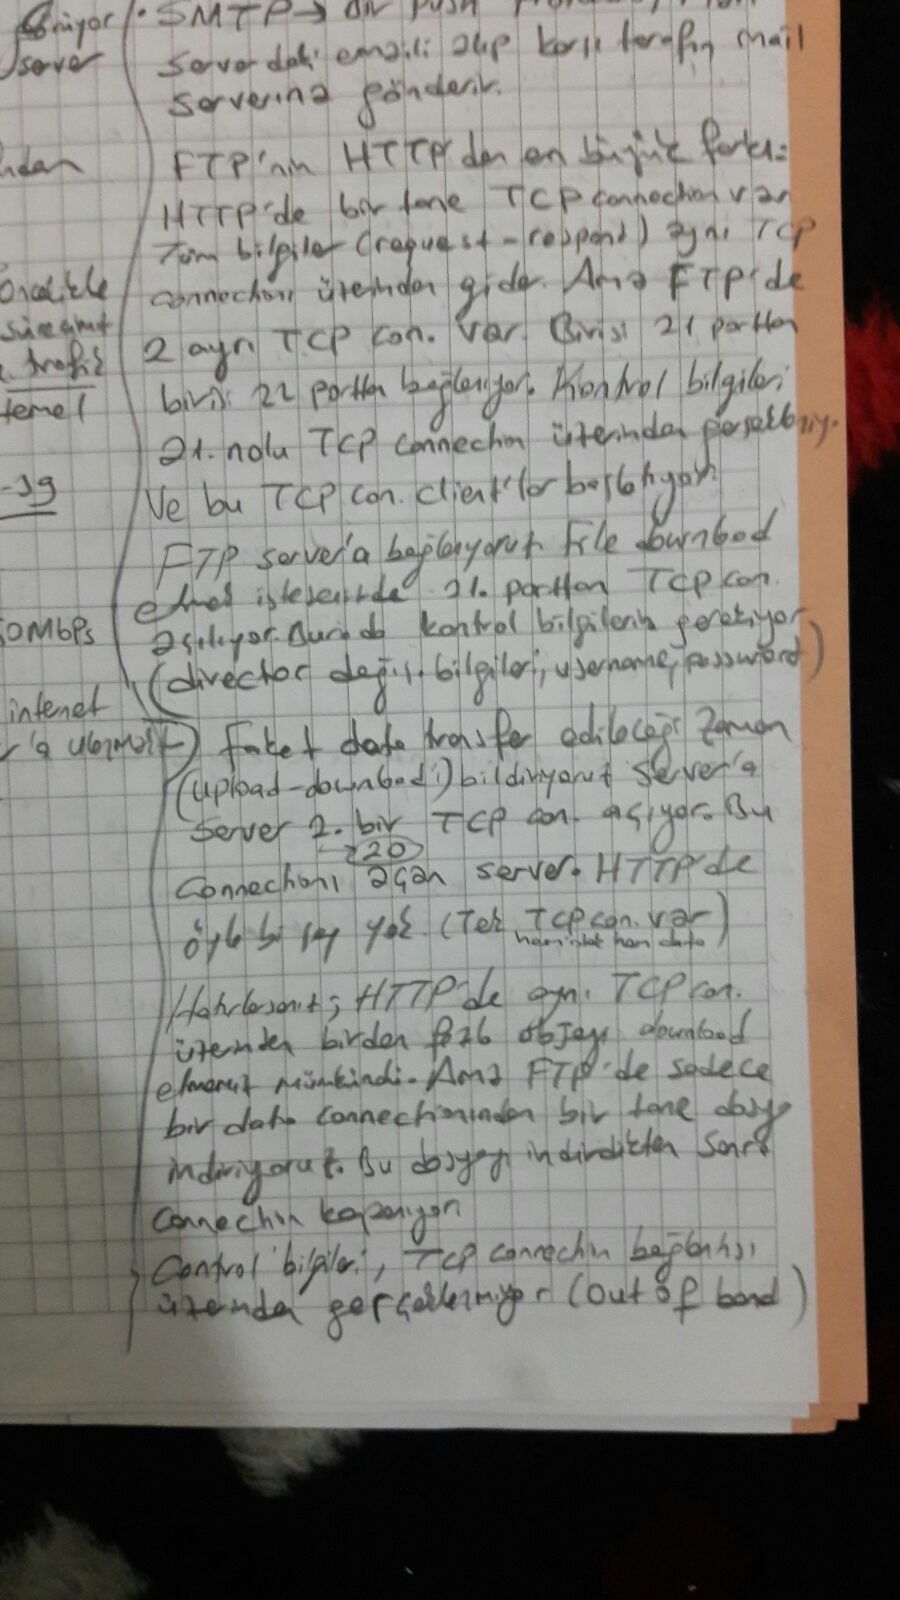 SMTP → bir push
server
serverdaki emaili alıp karşı tarafın mail
serverına gönderir.
FTP'nin HTTP'den en büyük farkı:
HTTP'de bir tane TCP connection var
Tüm bilgiler (request-respond) aynı TCP
Öncelikle
connectionı üzerinden gider. Ama FTP'de
2 ayrı TCP con. var. Birisi 21 porttan
trafik
birisi 22 porttan bağlanıyor. Kontrol bilgileri
temel
21. nolu TCP connection üzerinden
-19
Ve bu TCP con. client'lar başlatıyor.
FTP server'a bağlanıyoruz. File download
etmek istesenizde 21. porttan TCP con.
0Mbps
açılıyor. Burada kontrol bilgilerin gerekiyor
(director değiş. bilgileri, username, password)
internet
Fakat data transfer edileceği zaman
(upload-download'ı) bildiriyoruz server'a
server 2. bir TCP con. açıyor. Bu
20
connectionı açan server. HTTP'de
öyle bi şey yok. (Tek TCP con. var)
hem data
Hatırlarsanız; HTTP'de aynı TCP con.
üzerinden birden fazla objeyi download
etmemiz mümkündü. Ama FTP'de sadece
bir data connectionından bir tane dosya
indiriyoruz. Bu dosyayı indirdikten sonra
connection kapanıyor.
Control bilgileri, TCP connection bağlantısı
üzerinden (out of band)